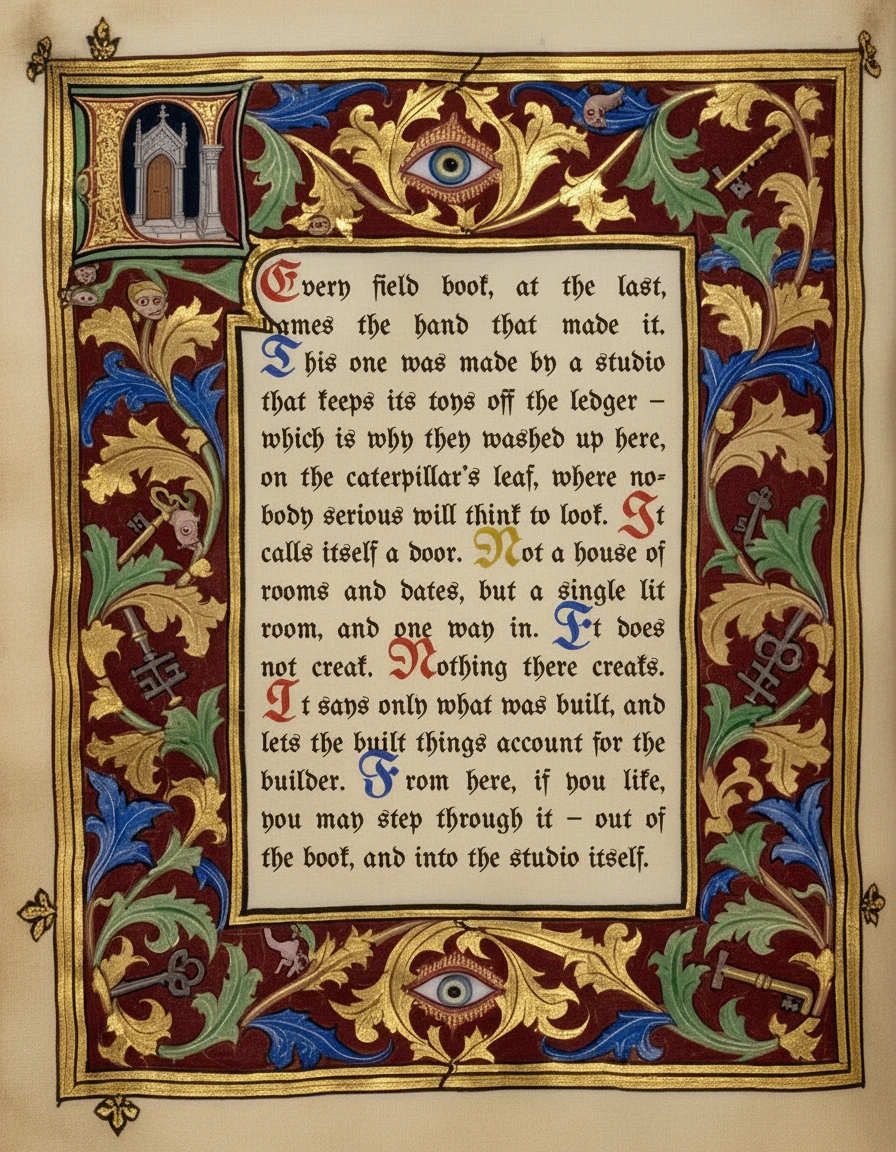 Every field book, at the last,
names the hand that made it.
This one was made by a studio
that keeps its toys off the ledger –
which is why they washed up here,
on the caterpillar's leaf, where no-
body serious will think to look. It
calls itself a door. Not a house of
rooms and dates, but a single lit
room, and one way in. It does
not creak. Nothing there creaks.
It says only what was built, and
lets the built things account for the
builder. From here, if you like,
you may step through it – out of
the book, and into the studio itself.